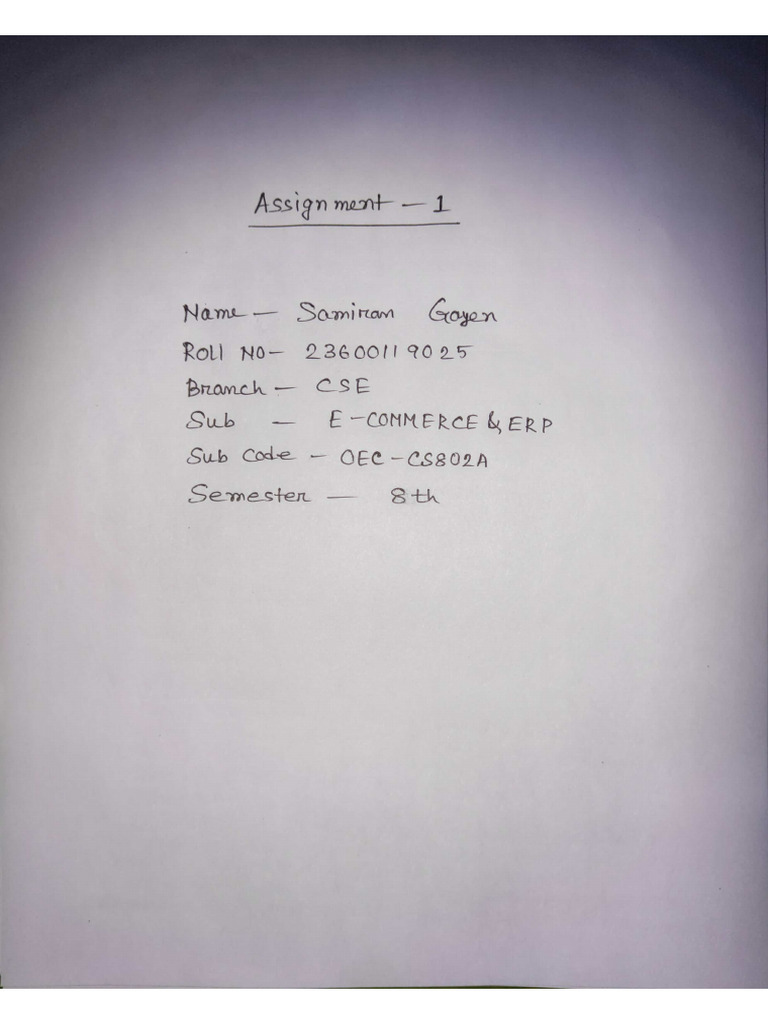 Assignment - 1
Name - Samiran Gayen
Roll No - 23600119025
Branch - CSE
Sub - E-COMMERCE & ERP
Sub Code - OEC-CS802A
Semester - 8th